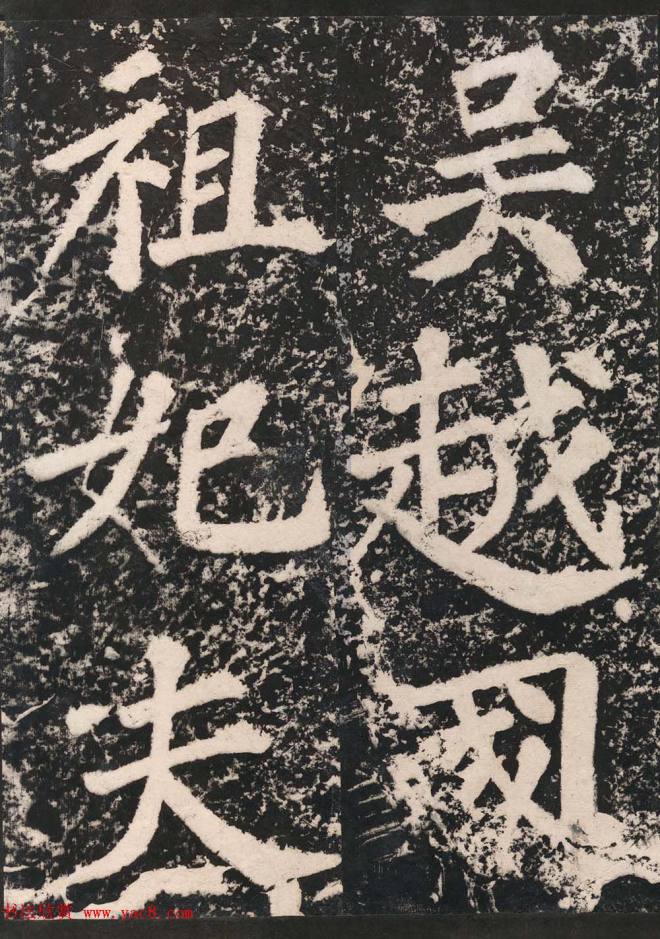 吴越國
祖妃夫
www.yac8.com